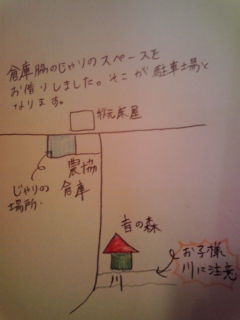 倉庫脇のじゃりのスペースを
お借りしました。そこが駐車場と
なります。
杉元床屋
農協
倉庫
じゃりの
場所.
音の森
川
お子様
川に注意